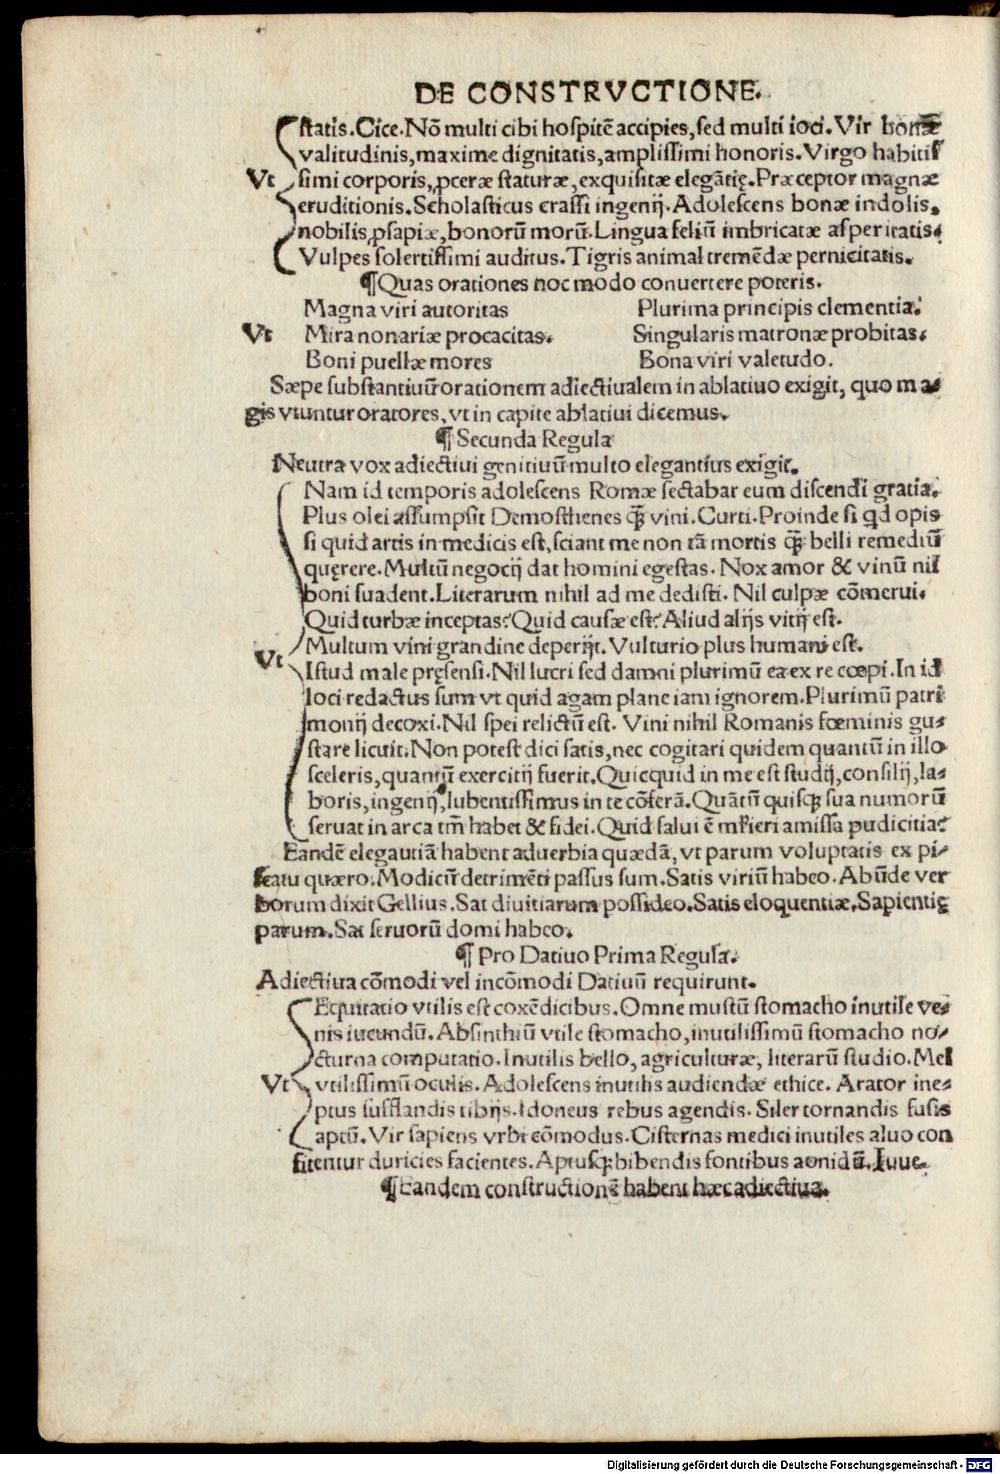 DE CONSTRVCTIONE.
statis. Cice. Nō multi cibi hospitē accipies, sed multi ioci. Vir bonæ
valitudinis, maxime dignitatis, amplissimi honoris. Virgo habitis
Vt simi corporis, ꝓceræ staturæ, exquisitæ elegātię. Præceptor magnæ
eruditionis. Scholasticus crassi ingenij. Adolescens bonæ indolis,
nobilis ꝓsapiæ, bonorū morū. Lingua feliū imbricatæ asperitatis.
Vulpes solertissimi auditus. Tigris animal tremēdæ pernicitatis.
¶ Quas orationes hoc modo conuertere poteris.
Magna viri autoritas Plurima principis clementia.
Vt Mira nonariæ procacitas. Singularis matronæ probitas.
Boni puellæ mores Bona viri valetudo.
Sæpe substantiuū orationem adiectiualem in ablatiuo exigit, quo ma-
gis vtuntur oratores, vt in capite ablatiui dicemus.
¶ Secunda Regula
Neutra vox adiectiui genitiuū multo elegantius exigit.
Nam id temporis adolescens Romæ sectabar eum discendi gratia.
Plus olei assumpsit Demosthenes ꝙ̄ vini. Curti. Proinde si qd opis
si quid artis in medicis est, sciant me non tā mortis ꝙ̄ belli remediū
quęrere. Multū negocij dat homini egestas. Nox amor & vinū nil
boni suadent. Literarum nihil ad me dedisti. Nil culpæ cōmerui.
Quid turbæ inceptas? Quid causæ est? Aliud alijs vitij est.
Multum vini grandine deperijt. Vulturio plus humani est.
Vt
Istud male pręsensi. Nil lucri sed damni plurimū ea ex re cœpi. In id
loci redactus sum vt quid agam plane iam ignorem. Plurimū patri
monij decoxi. Nil spei relictū est. Vini nihil Romanis fœminis gu-
stare licuit. Non potest dici satis, nec cogitari quidem quantū in illo
sceleris, quantū exercitij fuerit. Quicquid in me est studij, consilij, la-
boris, ingenij, lubentissimus in te cōferā. Quātū quisqꝫ sua numorū
seruat in arca tm̄ habet & fidei. Quid salui ē mr̄ieri amissa pudicitia?
Eandē elegantiā habent aduerbia quædā, vt parum voluptatis ex pi-
scatu quæro. Modicū detrimēti passus sum. Satis viriū habeo. Abūde ver
borum dixit Gellius. Sat diuitiarum possideo. Satis eloquentiæ, Sapientię
parum. Sat seruorū domi habeo.
¶ Pro Datiuo Prima Regula.
Adiectiua cōmodi vel incōmodi Datiuū requirunt.
Equitatio vtilis est coxēdicibus. Omne mustū stomacho inutile ve-
nis iucundū. Absinthiū vtile stomacho, inutilissimū stomacho no-
cturna computatio. Inutilis bello, agriculturæ, literarū studio. Mel
Vt vtilissimū oculis. Adolescens inutilis audiendæ ethice. Arator ine-
ptus sufflandis tibijs. Idoneus rebus agendis. Siler tornandis fusis
aptū. Vir sapiens vrbi cōmodus. Cisternas medici inutiles aluo con
fitentur duricies facientes. Aptusqꝫ bibendis fontibus aonidū. Iuue.
¶ Eandem constructionē habent hæc adiectiua.
Digitalisierung gefördert durch die Deutsche Forschungsgemeinschaft - DFG